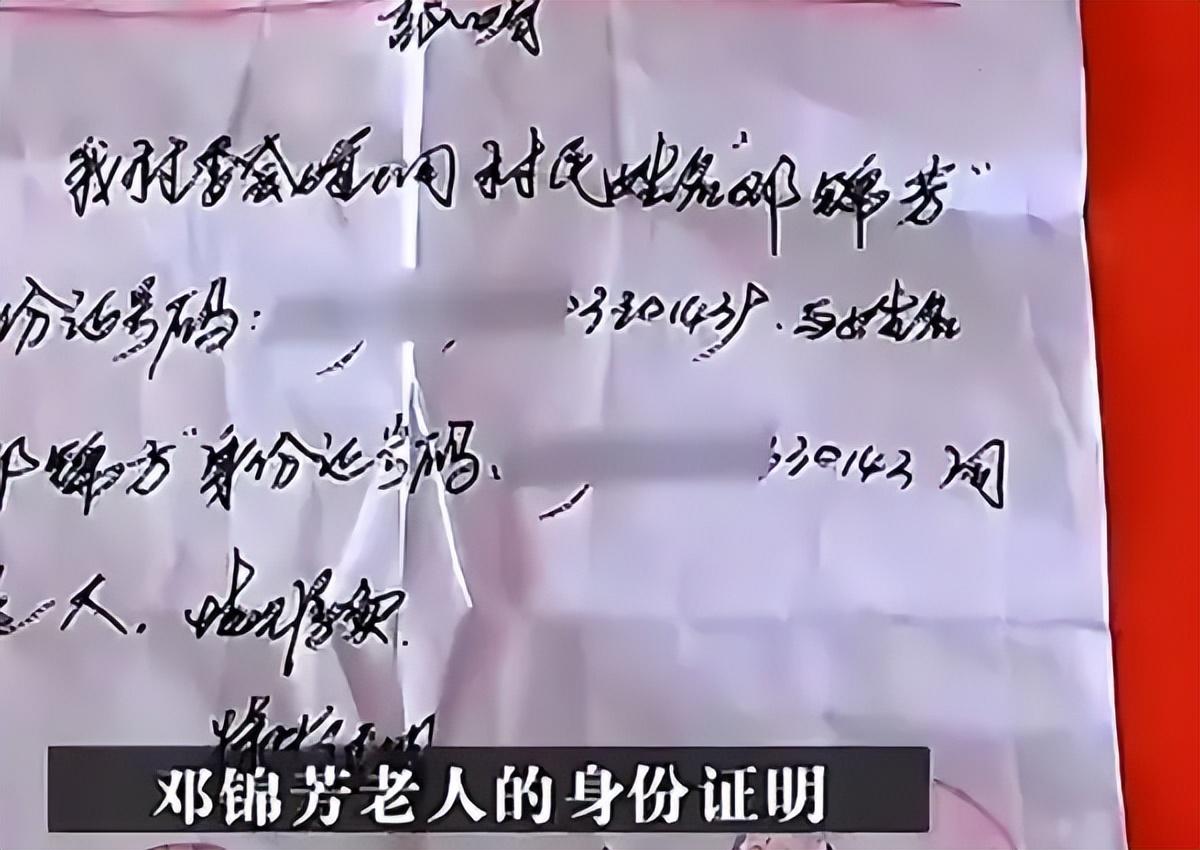 证明
我村委会证明村民姓名“邓锦芳”
份证号码: 与姓名
邓锦方”身份证号码: 330143 同
人.情况属实.
特此证明
邓锦芳老人的身份证明